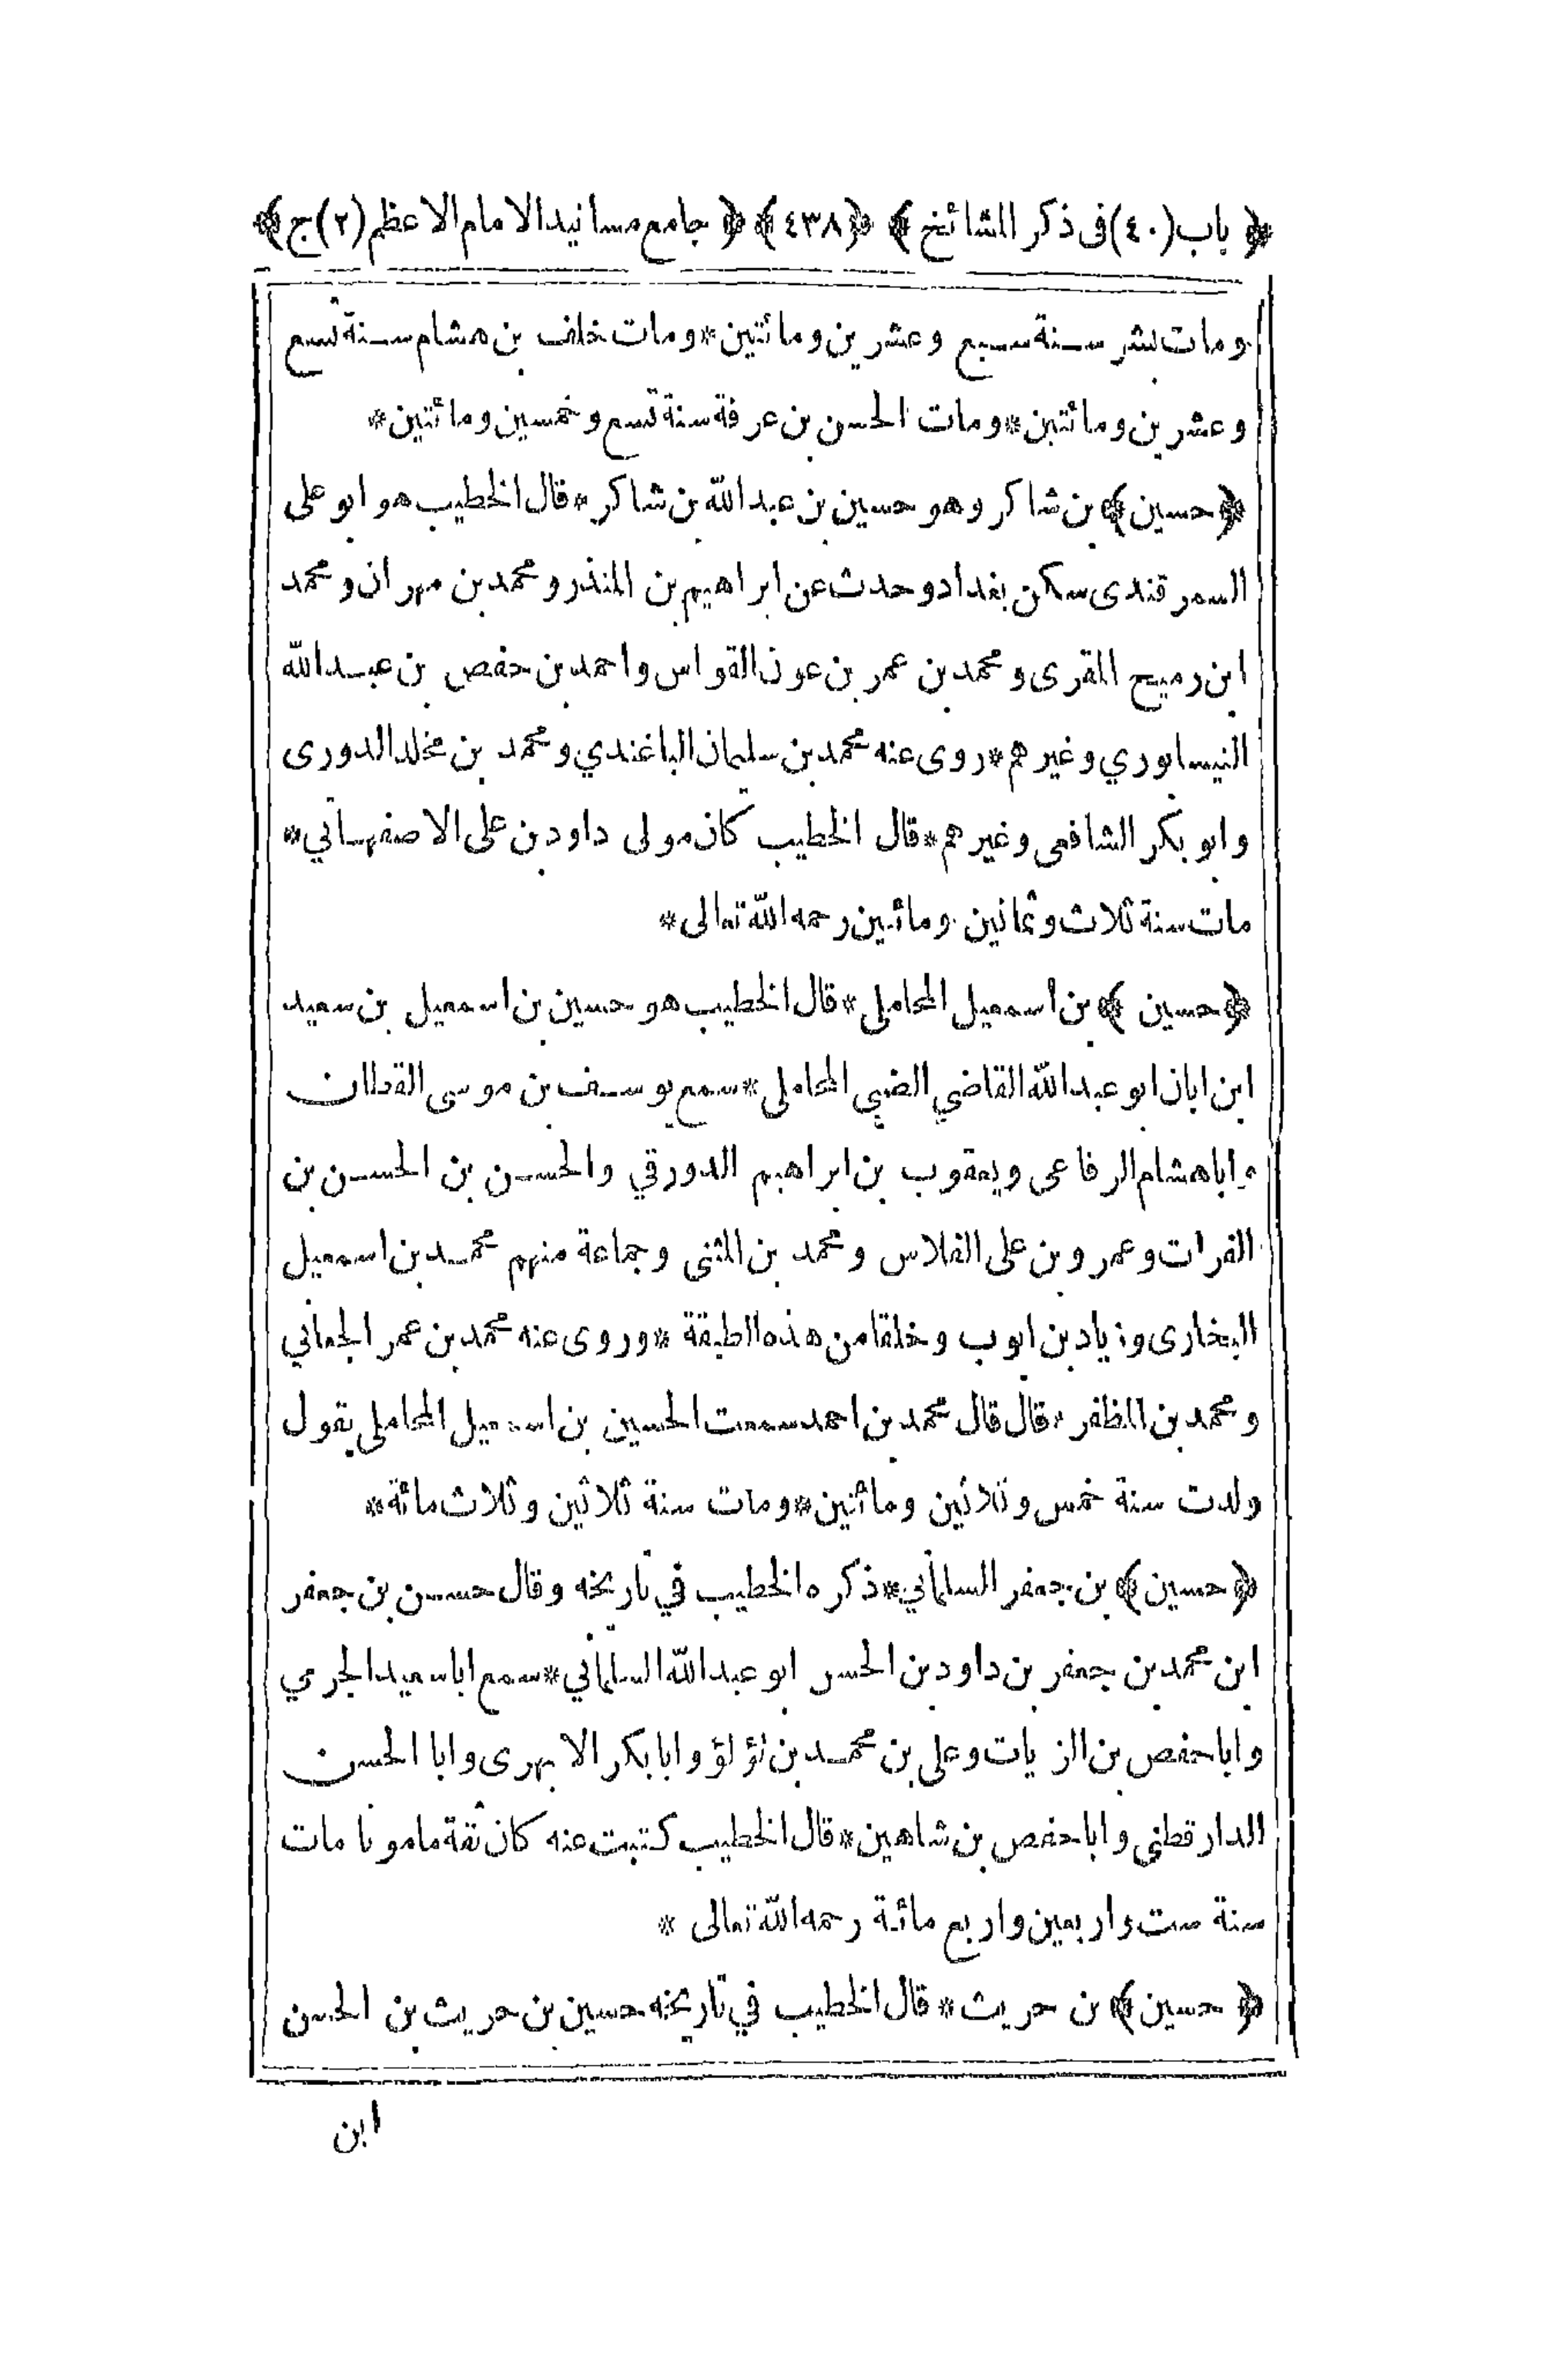 ﴿ باب (٤٠) فى ذكر المشائخ ﴾ ﴿ ٤٣٨ ﴾ ﴿ جامع مسانيد الامام الاعظم (٢) ج ﴾
ومات بشر سنة سبع وعشرين ومائتين * ومات خلف بن هشام سنة تسع
وعشرين ومائتين * ومات الحسن بن عرفة سنة تسع وخمسين ومائتين *
﴿ حسين ﴾ بن شاكر وهو حسين بن عبد الله بن شاكر * قال الخطيب هو ابو على
السمرقندى سكن بغداد وحدث عن ابراهيم بن المنذر ومحمد بن مهران ومحمد
ابن رميح المقرى ومحمد بن عمر بن عون القواس واحمد بن حفص بن عبد الله
النيسابوري وغيرهم * روى عنه محمد بن سليمان الباغندي ومحمد بن مخلد الدورى
وابو بكر الشافعى وغيرهم * قال الخطيب كان مولى داود بن على الاصفهاني *
مات سنة ثلاث وثمانين ومائتين رحمه الله تعالى *
﴿ حسين ﴾ بن اسمعيل المحاملي * قال الخطيب هو حسين بن اسمعيل بن سعيد
ابن ابان ابو عبد الله القاضي الضبي المحاملى * سمع يوسف بن موسى القطان
واباهشام الرفاعى ويعقوب بن ابراهيم الدورقي والحسن بن الحسن بن
الفرات وعمرو بن على الفلاس ومحمد بن المثنى وجماعة منهم محمد بن اسمعيل
البخارى وزياد بن ايوب وخلقا من هذه الطبقة * وروى عنه محمد بن عمر الجعاني
ومحمد بن المظفر * قال قال محمد بن احمد سمعت الحسين بن اسمعيل المحاملى يقول
ولدت سنة خمس وثلاثين ومائتين * ومات سنة ثلاثين وثلاث مائة *
﴿ حسين ﴾ بن جعفر السلماني * ذكره الخطيب في تاريخه وقال حسين بن جعفر
ابن محمد بن جعفر بن داود بن الحسن ابو عبد الله السلماني * سمع اباسعيد الجرمي
واباحفص بن الزيات وعلى بن محمد بن لؤلؤ وابابكر الابهرى وابا الحسن
الدارقطنى واباحفص بن شاهين * قال الخطيب كتبت عنه كان ثقة مامونا مات
سنة ست واربعين واربع مائة رحمه الله تعالى *
﴿ حسين ﴾ بن حريث * قال الخطيب في تاريخه حسين بن حريث بن الحسن
ابن